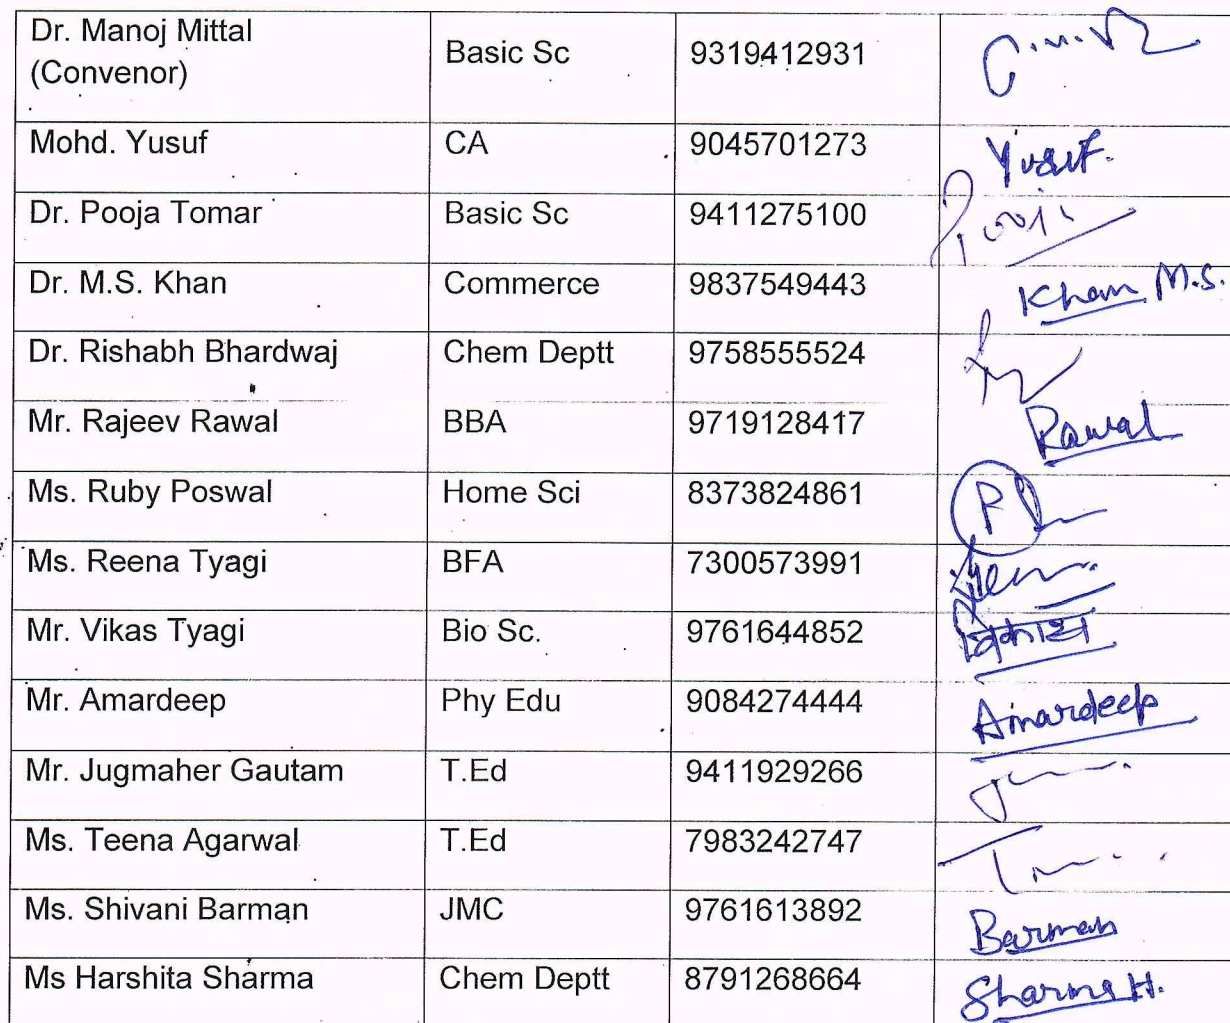 Dr. Manoj Mittal
(Convenor) Basic Sc 9319412931
Mohd. Yusuf CA 9045701273 Yusuf.
Dr. Pooja Tomar Basic Sc 9411275100 Pooja
Dr. M.S. Khan Commerce 9837549443 Khan M.S.
Dr. Rishabh Bhardwaj Chem Deptt 9758555524
Mr. Rajeev Rawal BBA 9719128417 Rawal
Ms. Ruby Poswal Home Sci 8373824861
Ms. Reena Tyagi BFA 7300573991
Mr. Vikas Tyagi Bio Sc. 9761644852
Mr. Amardeep Phy Edu 9084274444 Amardeep
Mr. Jugmaher Gautam T.Ed 9411929266
Ms. Teena Agarwal T.Ed 7983242747
Ms. Shivani Barman JMC 9761613892 Barman
Ms Harshita Sharma Chem Deptt 8791268664 Sharma H.